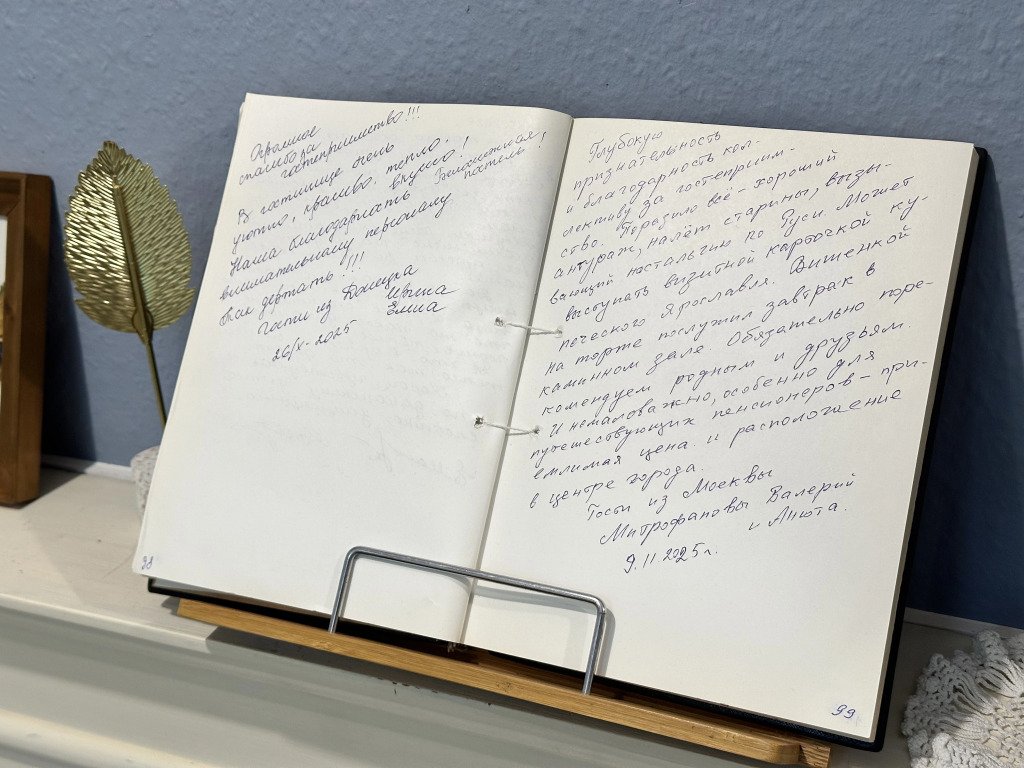 Огромное
спасибо за
гостеприимство!!!
В гостинице очень
уютно, красиво, тепло,
вкусно! Великолепная
постель!
Наша благодарность
внимательному персоналу.
Так держать!!!
Гости из Донецка
Ирина
Елена
26/X-2025
98
Глубокую
признательность
и благодарность кол-
лективу за гостеприим-
ство. Поразило всё - хороший
антураж, налёт старины, вызы-
вающий ностальгию по Руси. Может
выступать визитной карточкой ку-
печеского Ярославля. Вишенкой
на торте послужил завтрак в
каминном зале. Обязательно поре-
комендуем родным и друзьям.
И немаловажно, особенно для
путешествующих пенсионеров - при-
емлимая цена и расположение
в центре города.
Гости из Москвы
Митрофановы Валерий
и Анюта.
9.11.2025 г.
99